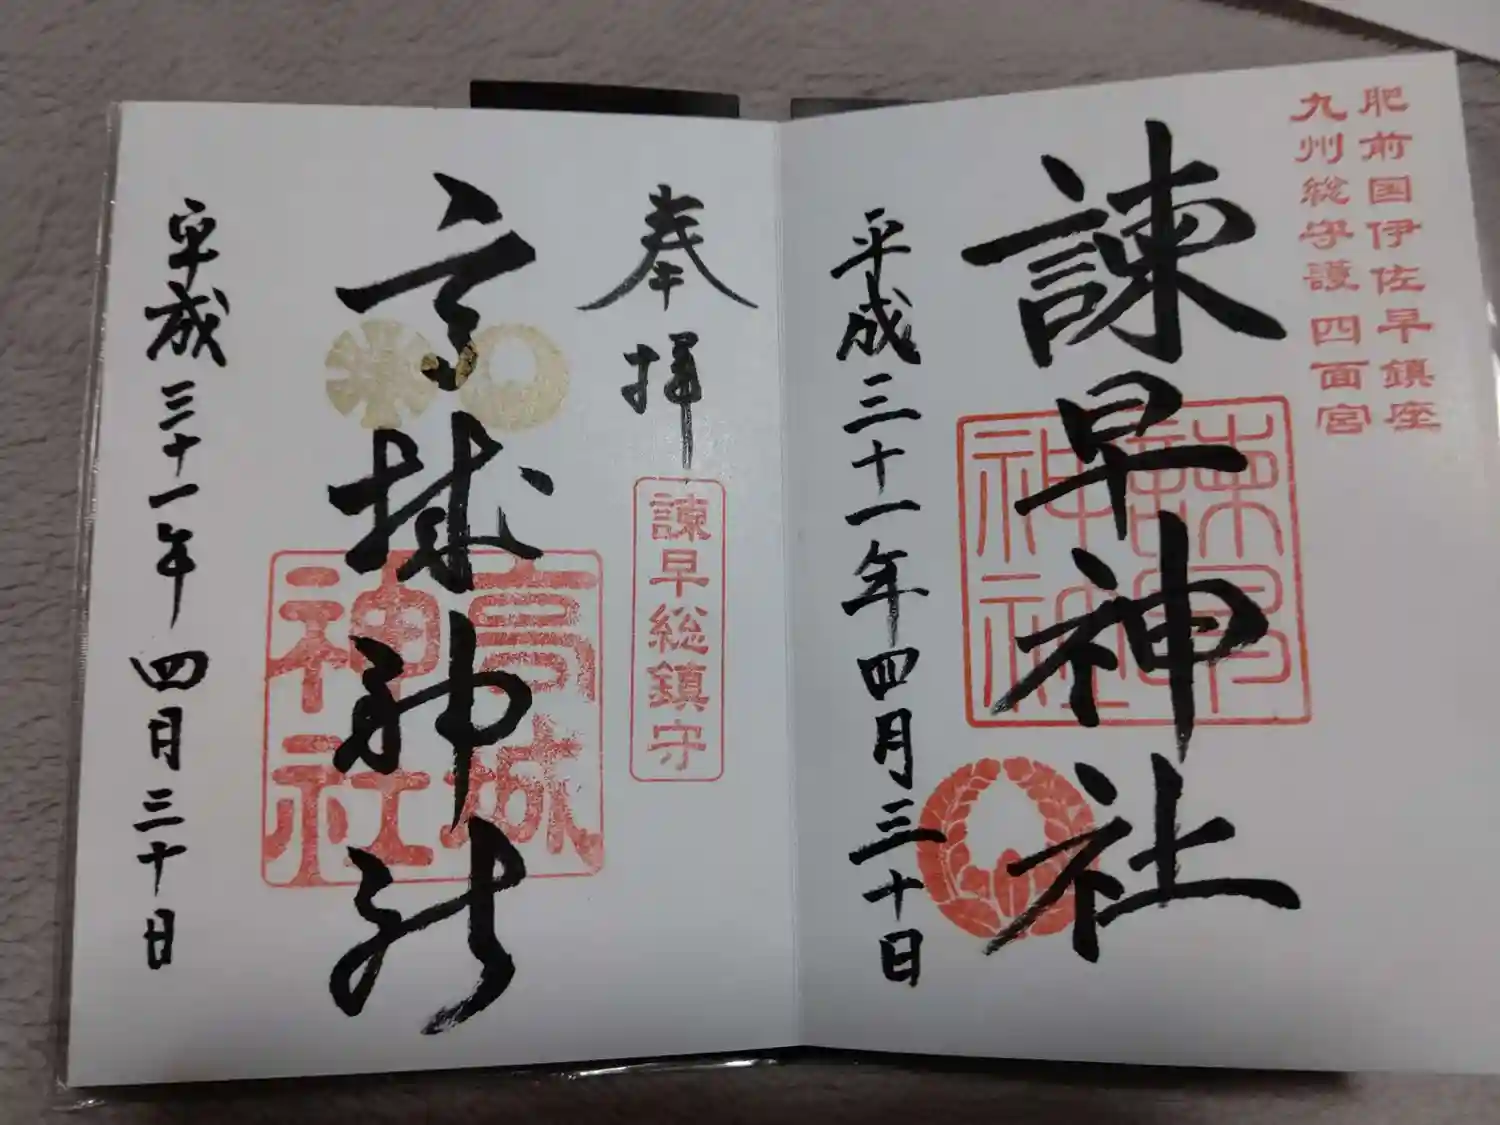 肥前国伊佐早鎮座
九州総守護四面宮
諫早神社
諫早
神社
平成三十一年四月三十日
奉拝
諫早総鎮守
高城神社
高城
神社
平成三十一年四月三十日